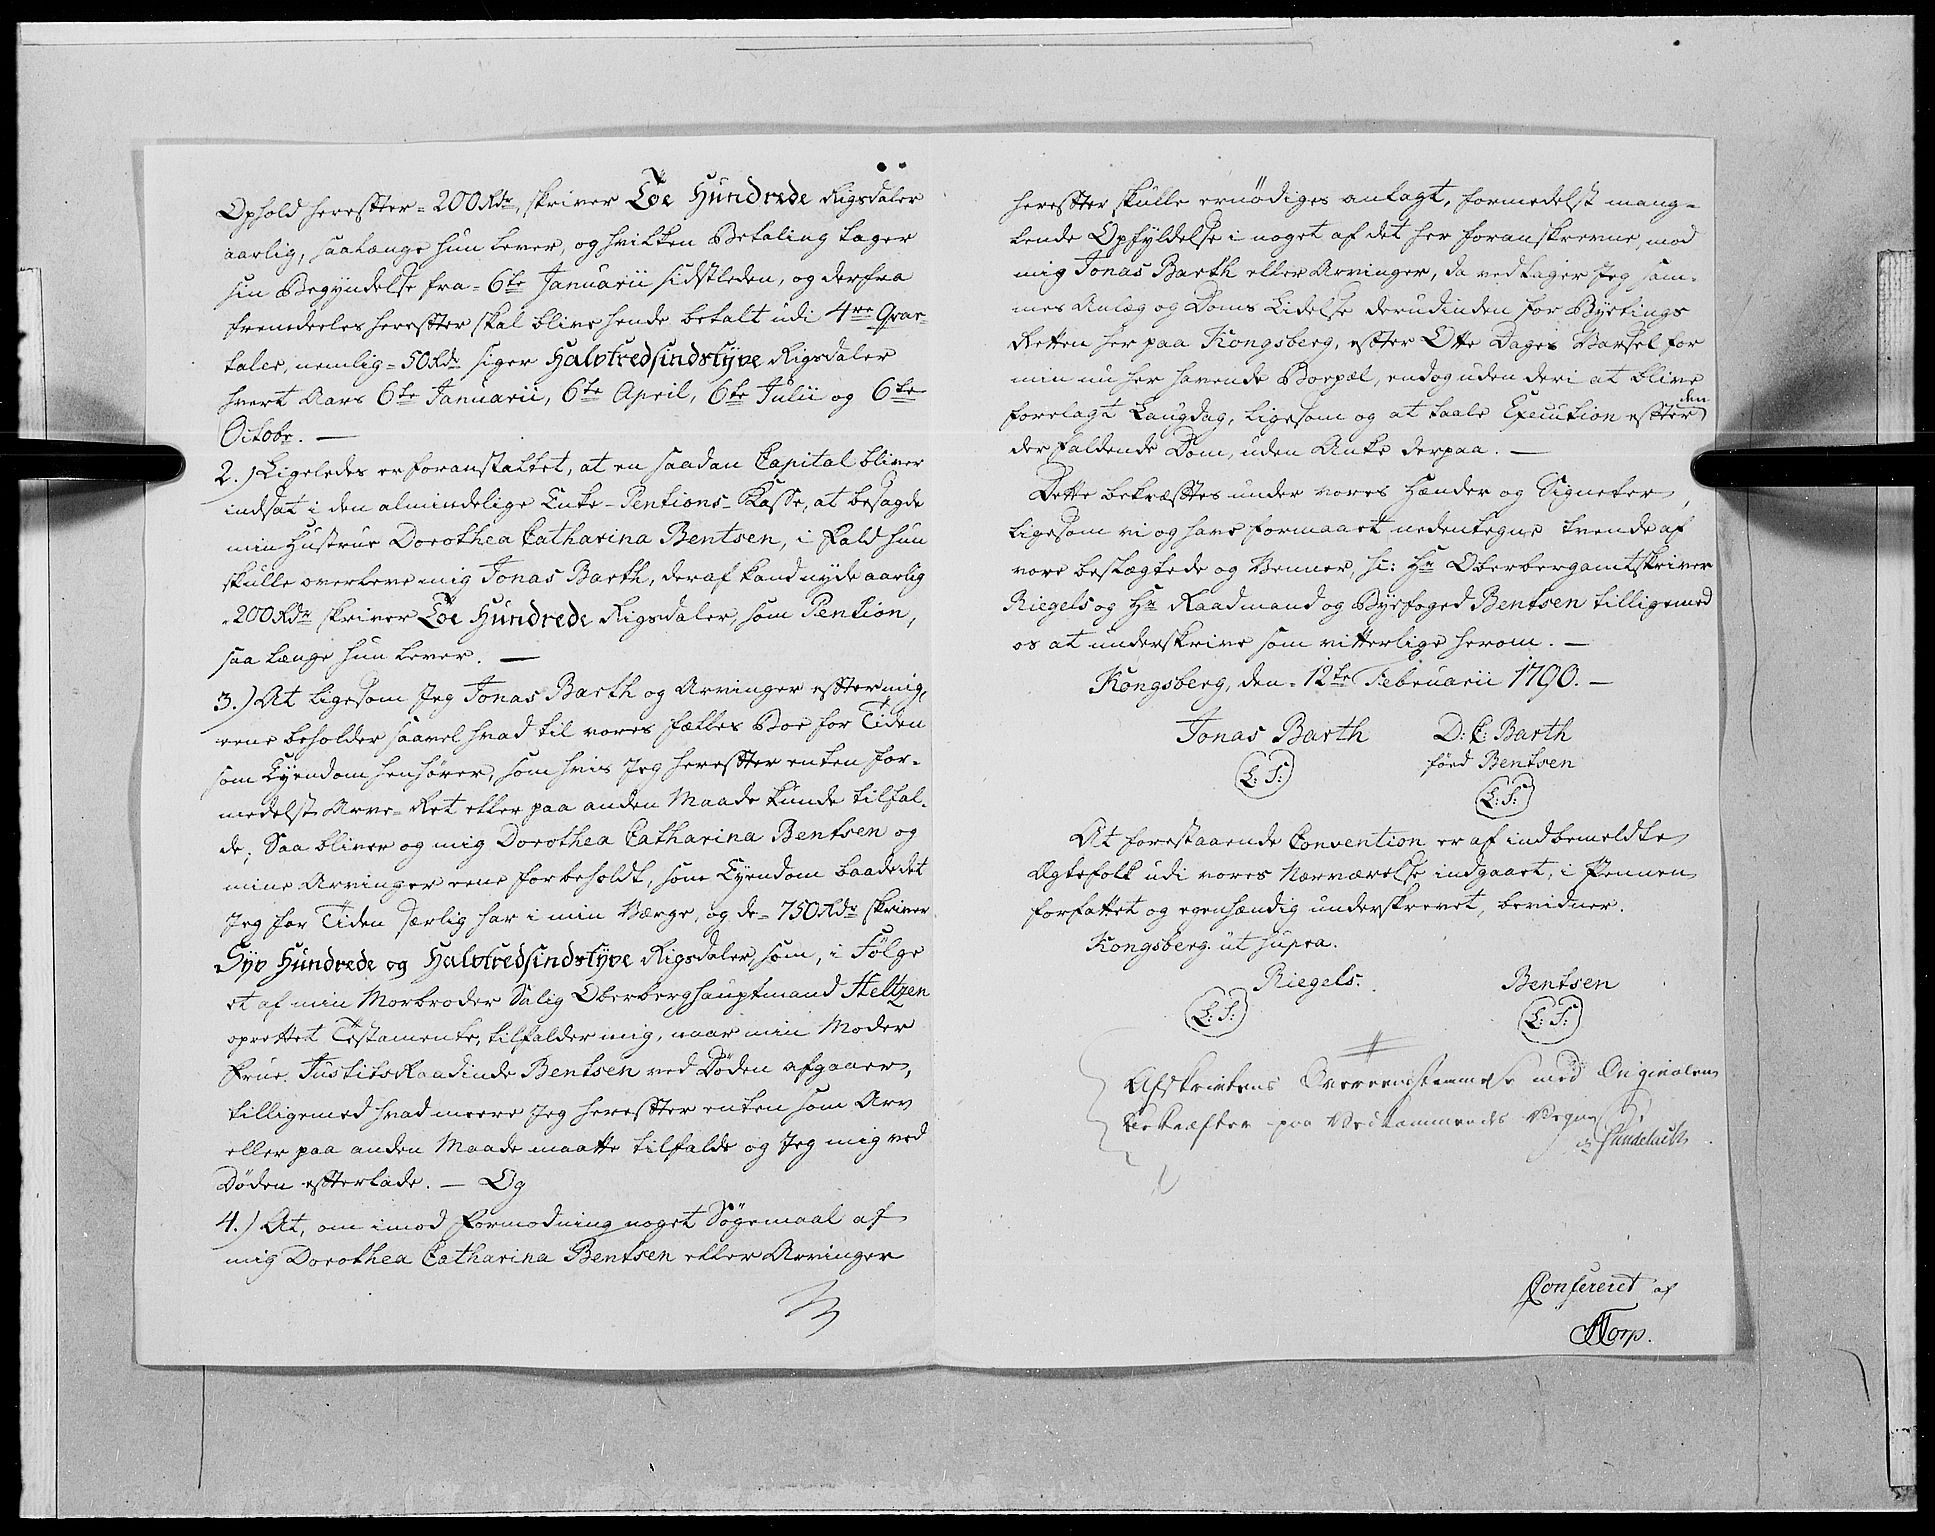 Ophold herefter = 200 Rdr, skriver Toe Hundrede Rigsdaler
aarlig, saalænge hun lever, og hvilken Betaling tager
sin Begyndelse fra = 6te Januarii sidstleden, og derfra
fremdeeles herefter skal blive hende betalt udi 4re Qvar-
taler, nemlig = 50 Rdr siger Halvtredsindstyve Rigsdaler
hvert Aars 6te Januarii, 6te April, 6te Julii og 6te
Octobr. —
2.) Ligeledes er foranstaltet, at en saadan Capital bliver
indsat i den almindelige Enke-Pentions-Kasse, at besagde
min Hustrue Dorothea Catharina Bentsen, i Fald hun
skulle overleve mig Jonas Barth, deraf kand nyde aarlig
= 200 Rdr skriver Toe Hundrede Rigsdaler, som Pention,
saa længe hun lever. —
3.) At ligesom Jeg Jonas Barth og Arvinger efter mig,
eene beholder saavel hvad til vores fælles Boe for Tiden
som Eyendom henhører, som hvis Jeg herefter enten for-
medelst Arve-Ret eller paa anden Maade kunde tilfal-
de; Saa bliver og mig Dorothea Catharina Bentsen og
mine Arvinger eene forbeholdt, som Eyendom baade det
Jeg for Tiden særlig har i min Værge, og de = 750 Rdr skriver
Syv Hundrede og Halvtredsindstyve Rigsdaler, som, i Følge
et af min Morbroder Salig Oberberghauptmand Heltzen
oprettet Testamente, tilfalder mig, naar min Moder
Frue Justitsraadinde Bentsen ved Døden afgaaer,
tilligemed hvad meere Jeg herefter enten som Arv
eller paa anden Maade maatte tilfalde og Jeg mig ved
Døden efterlade. — Og
4.) At, om imod Formodning noget Søgemaal af
mig Dorothea Catharina Bentsen eller Arvinger
herefter skulle ernødiges anlagt, formedelst mang-
lende Opfyldelse i noget af det her foranskrevne, mod
mig Jonas Barth eller Arvinger, da vedtager Jeg sam-
mes Anlæg og Doms Lidelse derudinden for Byetings
Retten her paa Kongsberg, efter Otte Dages Varsel for
min nu her havende Boepæl, endog uden deri at blive
forelagt Laugdag, ligesom og at taale Execution efter den
der faldende Dom, uden Anke derpaa. —
Dette bekræftes under vores Hænder og Signeter,
ligesom vi og have formaaet nedentegne tvende af
vore beslægtede og Venner, sc: Hr Oberbergamtskriver
Riegels og Hr Raadmand og Byefoged Bentsen tilligemed
os at underskrive som vitterlige herom. —
Kongsberg, den = 12te Februarii 1790. —
Jonas Barth D: C: Barth
(L: S:) föed Bentsen
(L: S:)
At forestaaende Convention er af indbemeldte
Ægtefolk udi vores Nærværelse indgaaet, i Pennen
forfattet og egenhændig underskrevet, bevidner.
Kongsberg ut supra.
Riegels. Bentsen
(L: S:) (L: S:)
Afskriftens Overeenstemmelse med Originalen
bekræfter paa Vedkommendes Vegne
Confereret af
Torp.